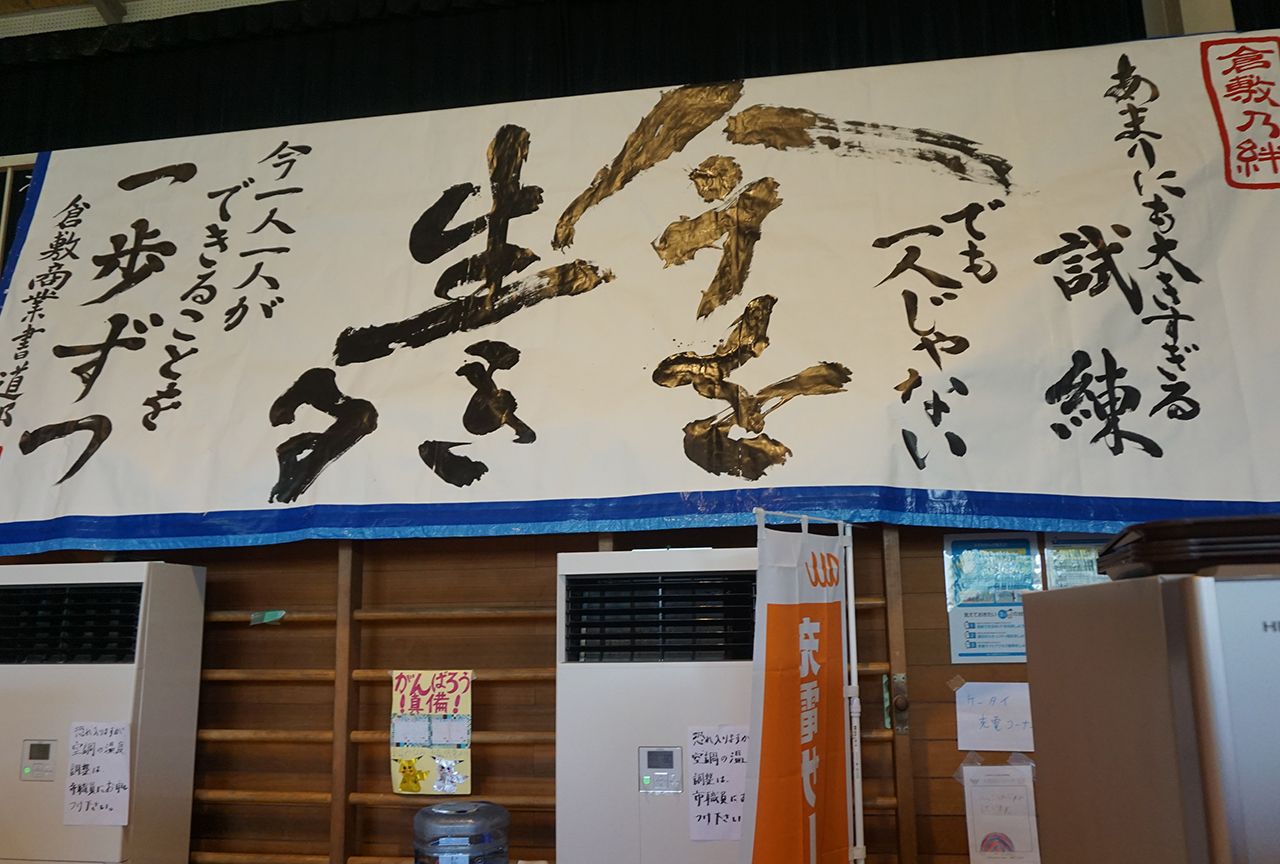 倉敷乃絆
あまりにも大きすぎる
試練
でも
一人じゃない
今を
生きる
今一人一人が
できることを
一歩ずつ
倉敷商業書道部
au
充電サー
がんばろう
!真備!
恐れ入りますが
空調の温度
調整は、
市職員にお申し
つけ下さい。
恐れ入りますが
空調の温
調整は、
市職員にお
つけ下さい
ケータイ
充電コーナー